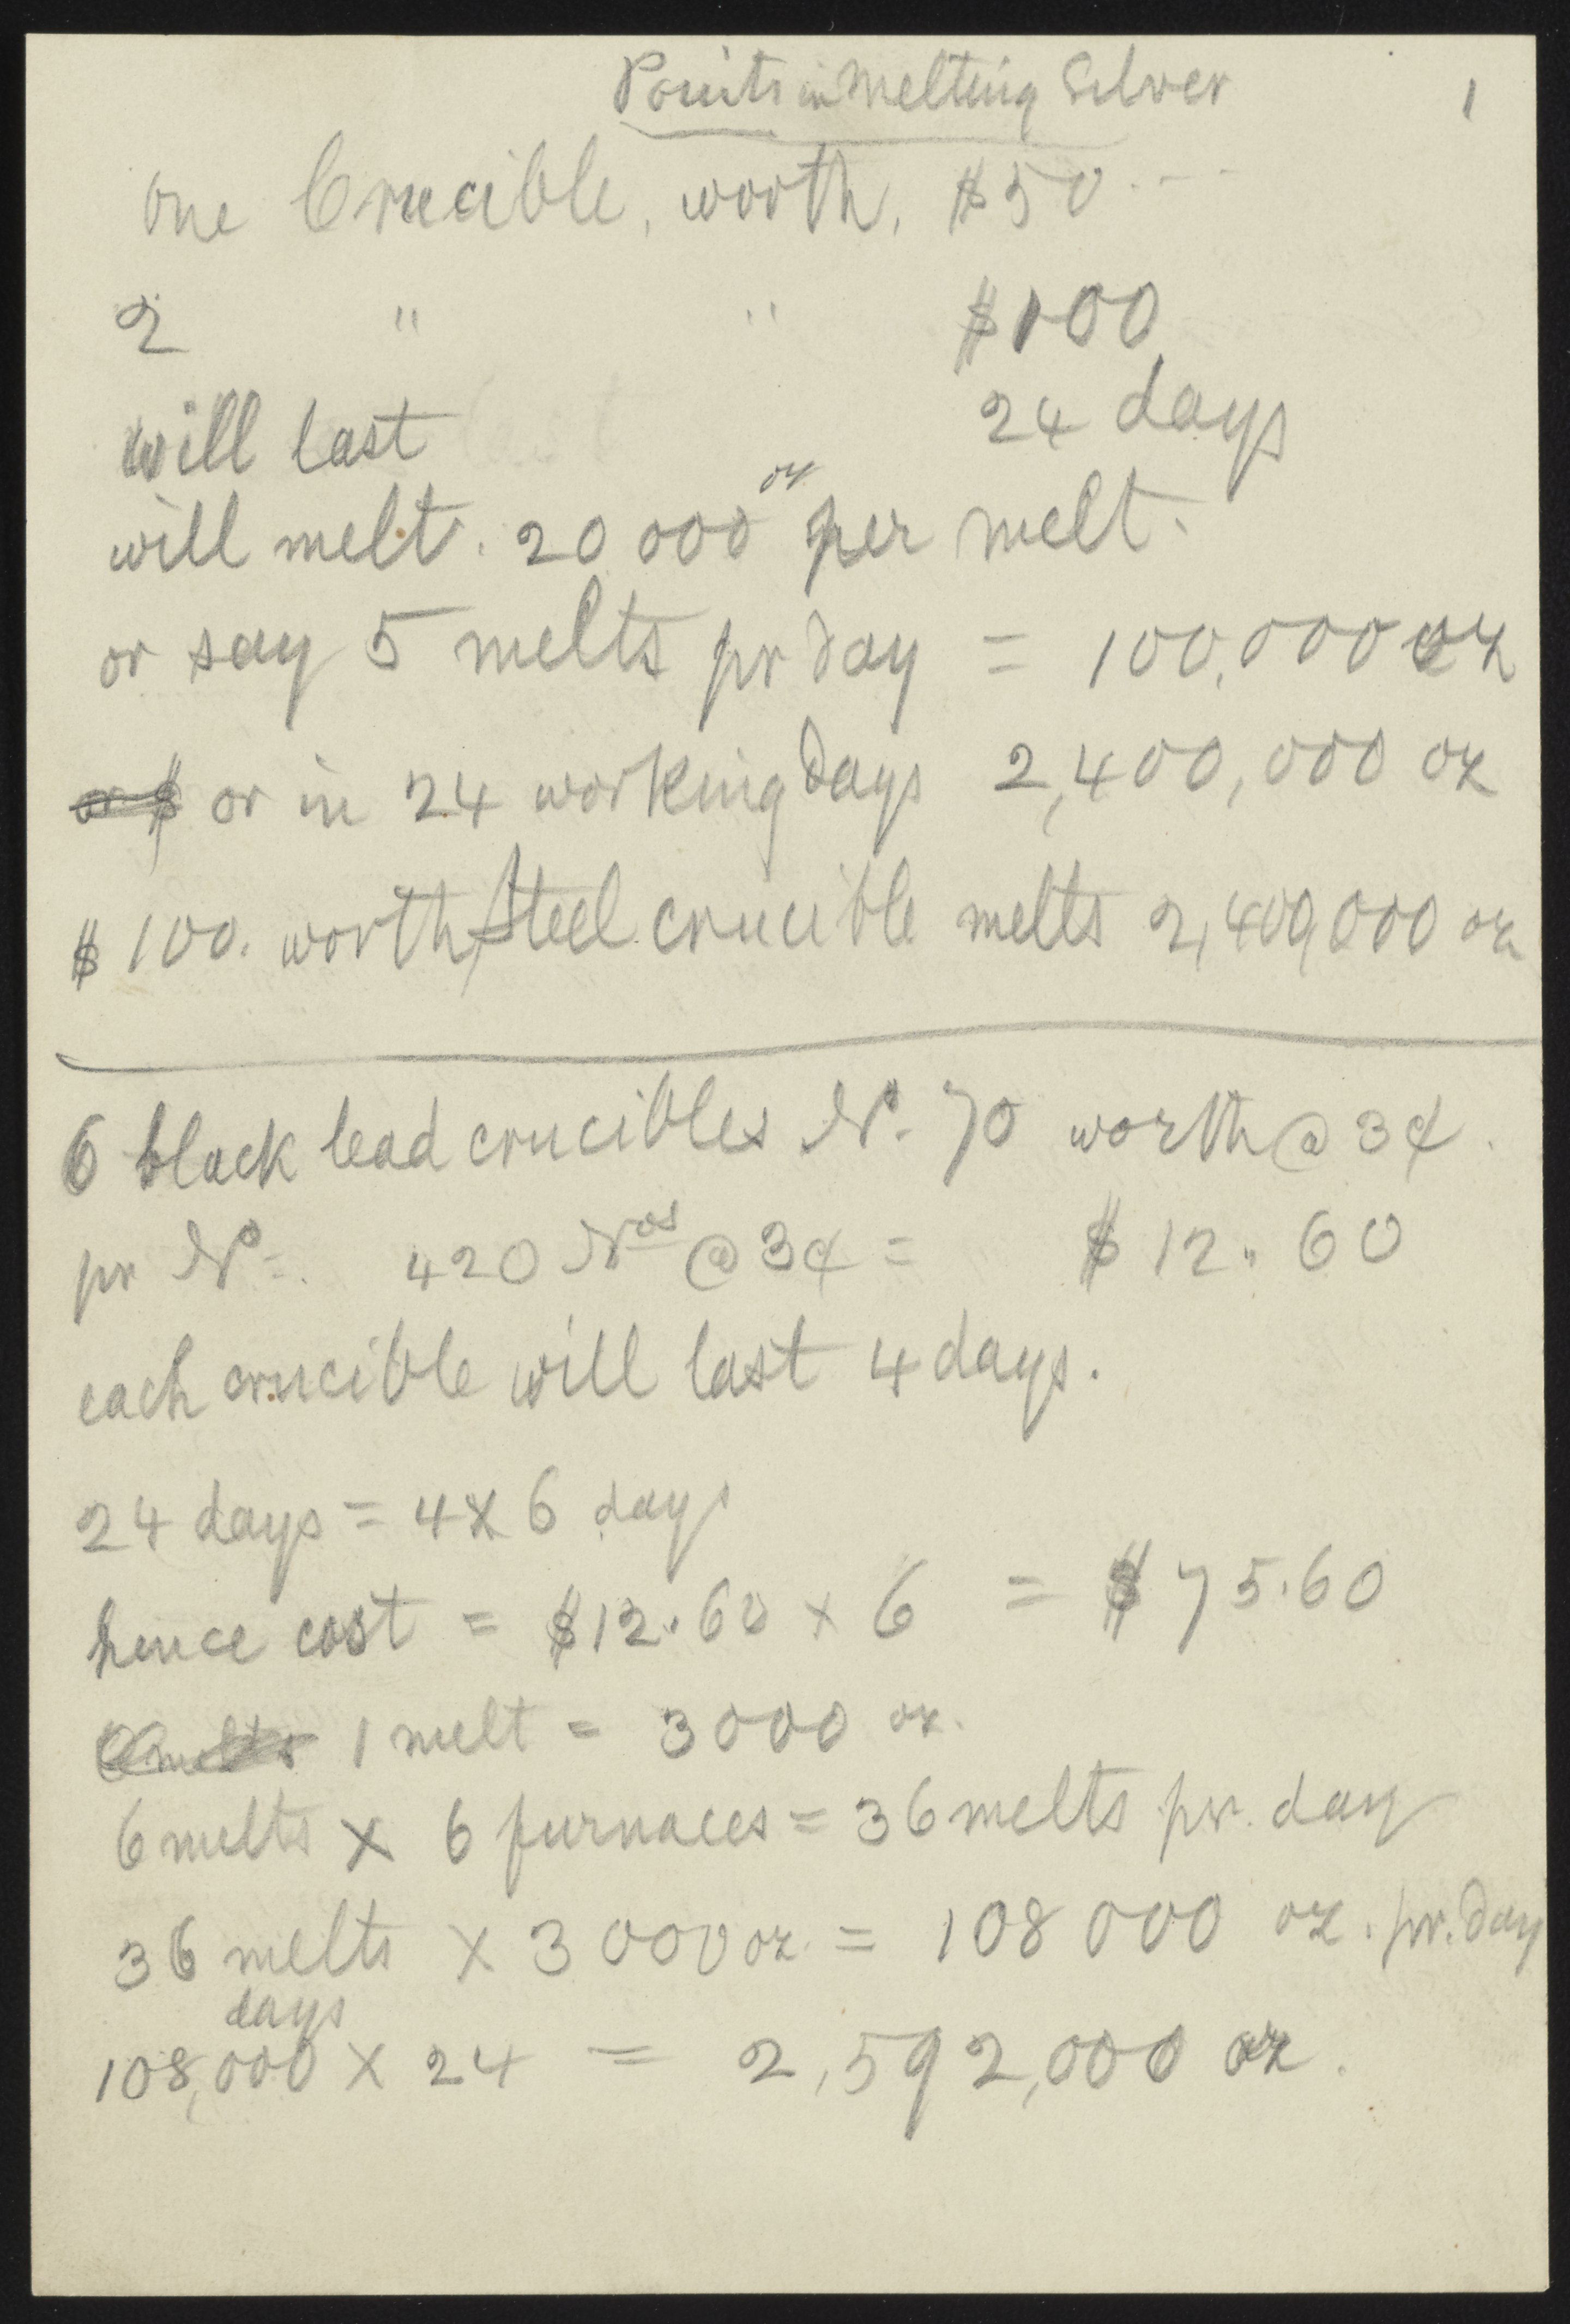 Points in Melting Silver 1
One Crucible, worth, $50---
2 " " $100
will last 24 days
will melt. 20 000 oz per melt.
or say 5 melts pr day = 100,000 oz
or $ or in 24 working days 2,400,000 oz
$100. worth, Steel crucible melts 2,400,000 oz
6 black lead crucibles No. 70 worth @ 3¢.
pr No. 420 Nos @ 3¢ = $12.60
each crucible will last 4 days.
24 days = 4 x 6 days
hence cost = $12.60 x 6 = $75.60
1 melt = 3000 oz.
6 melts x 6 furnaces = 36 melts pr. day
36 melts x 3 000 oz. = 108 000 oz. pr. day
days
108,000 x 24 = 2,592,000 oz.